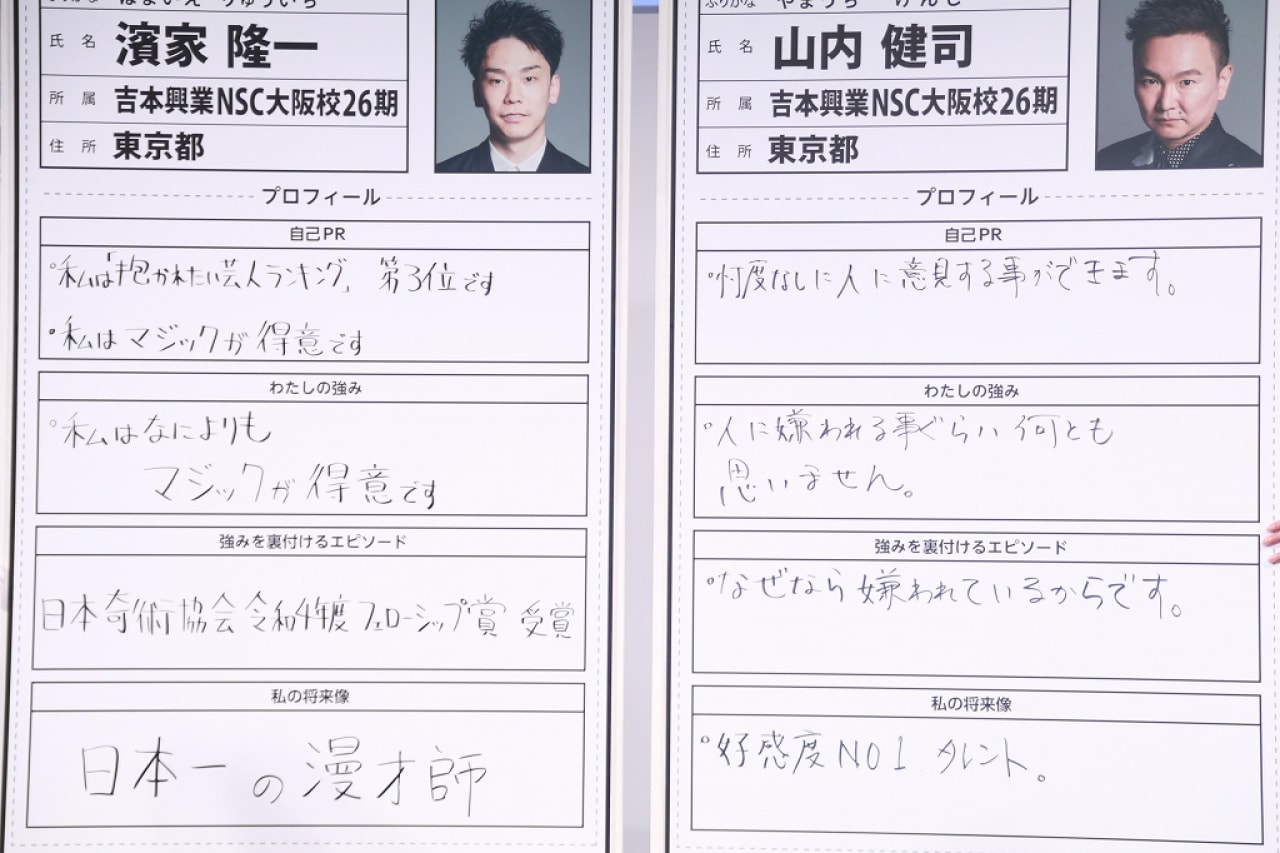 ふりがな はまいえ りゅういち
氏名 濱家 隆一
所属 吉本興業NSC大阪校26期
住所 東京都
プロフィール
自己PR
°私は「抱かれたい芸人ランキング」 第3位です
°私はマジックが得意です
わたしの強み
°私はなによりも
マジックが得意です
強みを裏付けるエピソード
日本奇術協会 令和4年度 フェローシップ賞 受賞
私の将来像
日本一の漫才師
ふりがな やまうち けんじ
氏名 山内 健司
所属 吉本興業NSC大阪校26期
住所 東京都
プロフィール
自己PR
°忖度なしに人に意見する事ができます。
わたしの強み
°人に嫌われる事ぐらい何とも
思いません。
強みを裏付けるエピソード
°なぜなら嫌われているからです。
私の将来像
°好感度NO1 タレント。